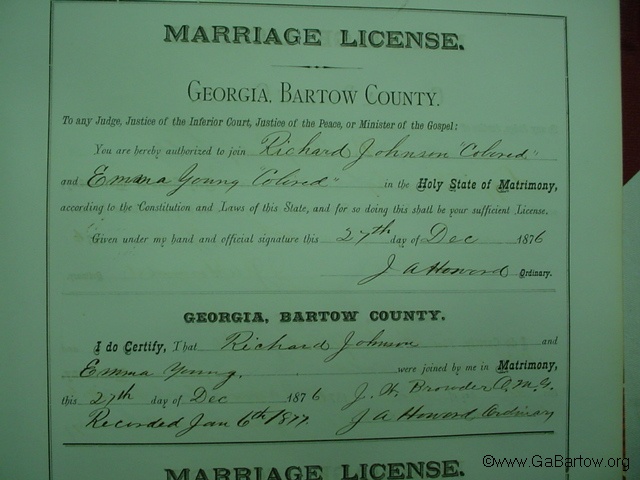 MARRIAGE LICENSE.
GEORGIA, BARTOW COUNTY.
To any Judge, Justice of the Inferior Court, Justice of the Peace, or Minister of the Gospel:
You are hereby authorized to join Richard Johnson "Colored"
and Emma Young "Colored" in the Holy State of Matrimony,
according to the Constitution and Laws of this State, and for so doing this shall be your sufficient License.
Given under my hand and official signature this 27th day of Dec 1876
J A Howard Ordinary.
GEORGIA, BARTOW COUNTY.
I do Certify, That Richard Johnson and
Emma Young. were joined by me in Matrimony,
this 27th day of Dec 1876 J. H. Browder O.M.G.
Recorded Jan 6th 1877. J A Howard, Ordinary
MARRIAGE LICENSE.
©www.GaBartow.org